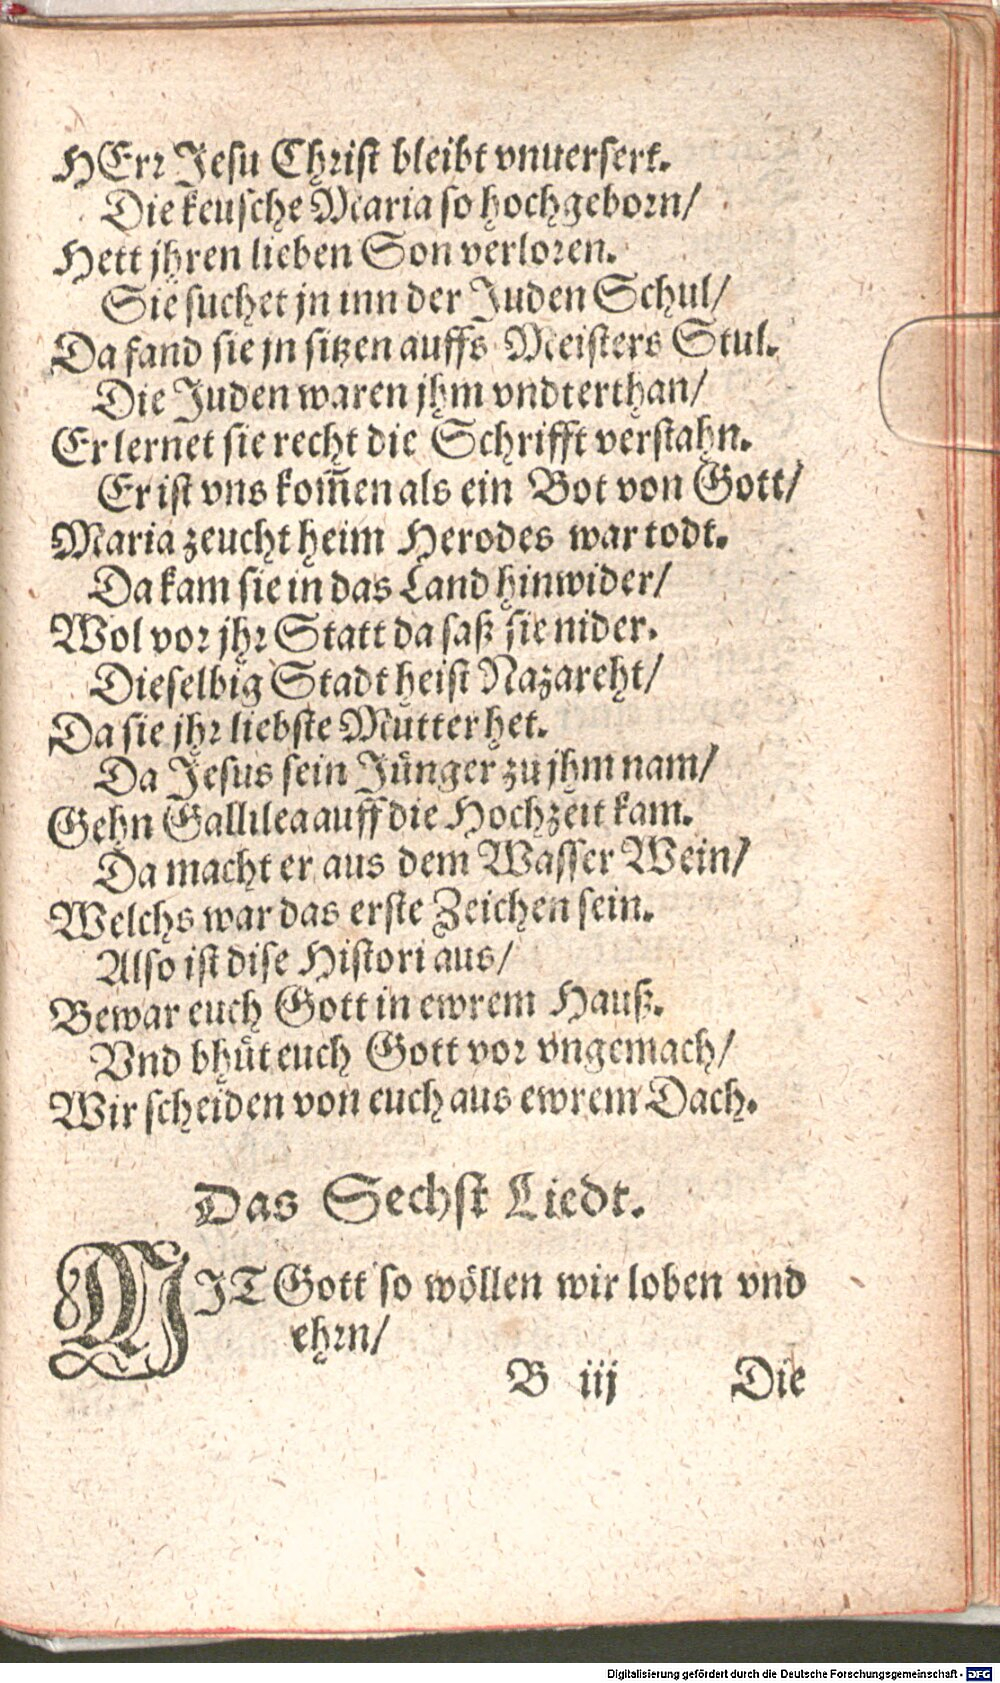 HErr Jesu Christ bleibt vnuersert.
Die keusche Maria so hochgeborn/
Hett jhren lieben Son verloren.
Sie suchet jn inn der Juden Schul/
Da fand sie jn sitzen auffs Meisters Stul.
Die Juden waren jhm vndterthan/
Er lernet sie recht die Schrifft verstahn.
Er ist vns kom̃en als ein Bot von Gott/
Maria zeucht heim Herodes war todt.
Da kam sie in das Land hinwider/
Wol vor jhr Statt da saß sie nider.
Dieselbig Stadt heist Nazareht/
Da sie jhr liebste Mutter het.
Da Jesus sein Jünger zu jhm nam/
Gehn Gallilea auff die Hochzeit kam.
Da macht er aus dem Wasser Wein/
Welchs war das erste Zeichen sein.
Also ist dise Histori aus/
Bewar euch Gott in ewrem Hauß.
Vnd bhüt euch Gott vor vngemach/
Wir scheiden von euch aus ewrem Dach.
Das Sechst Liedt.
MIT Gott so wöllen wir loben vnd
ehrn/
B iij Die
Digitalisierung gefördert durch die Deutsche Forschungsgemeinschaft - DFG